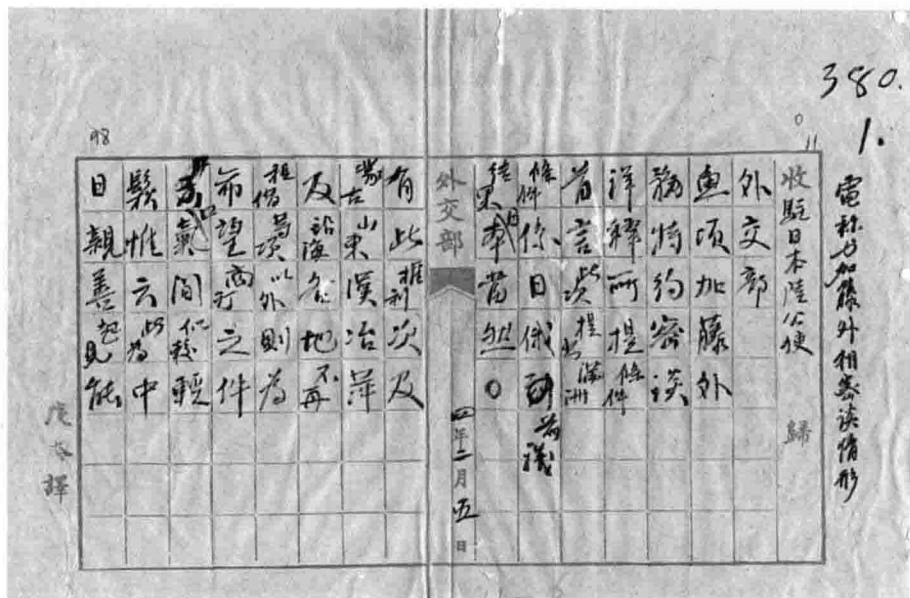 380.
1.
11
98
電称与加藤外相密谈情形
收駐日本陸公使
歸
外交部
魚項加藤外
稱特約密談
詳釋所提條件
首言此次提出滿洲
條件係日俄前議
結果日本當然〇
外交部
四年二月五日
有此權利次及
蒙古山東漢冶萍
及沿海各地不再
租借萬項以外則為
希望商訂之件
口氣間似較輕
鬆惟云此為中
日親善起見能
譯